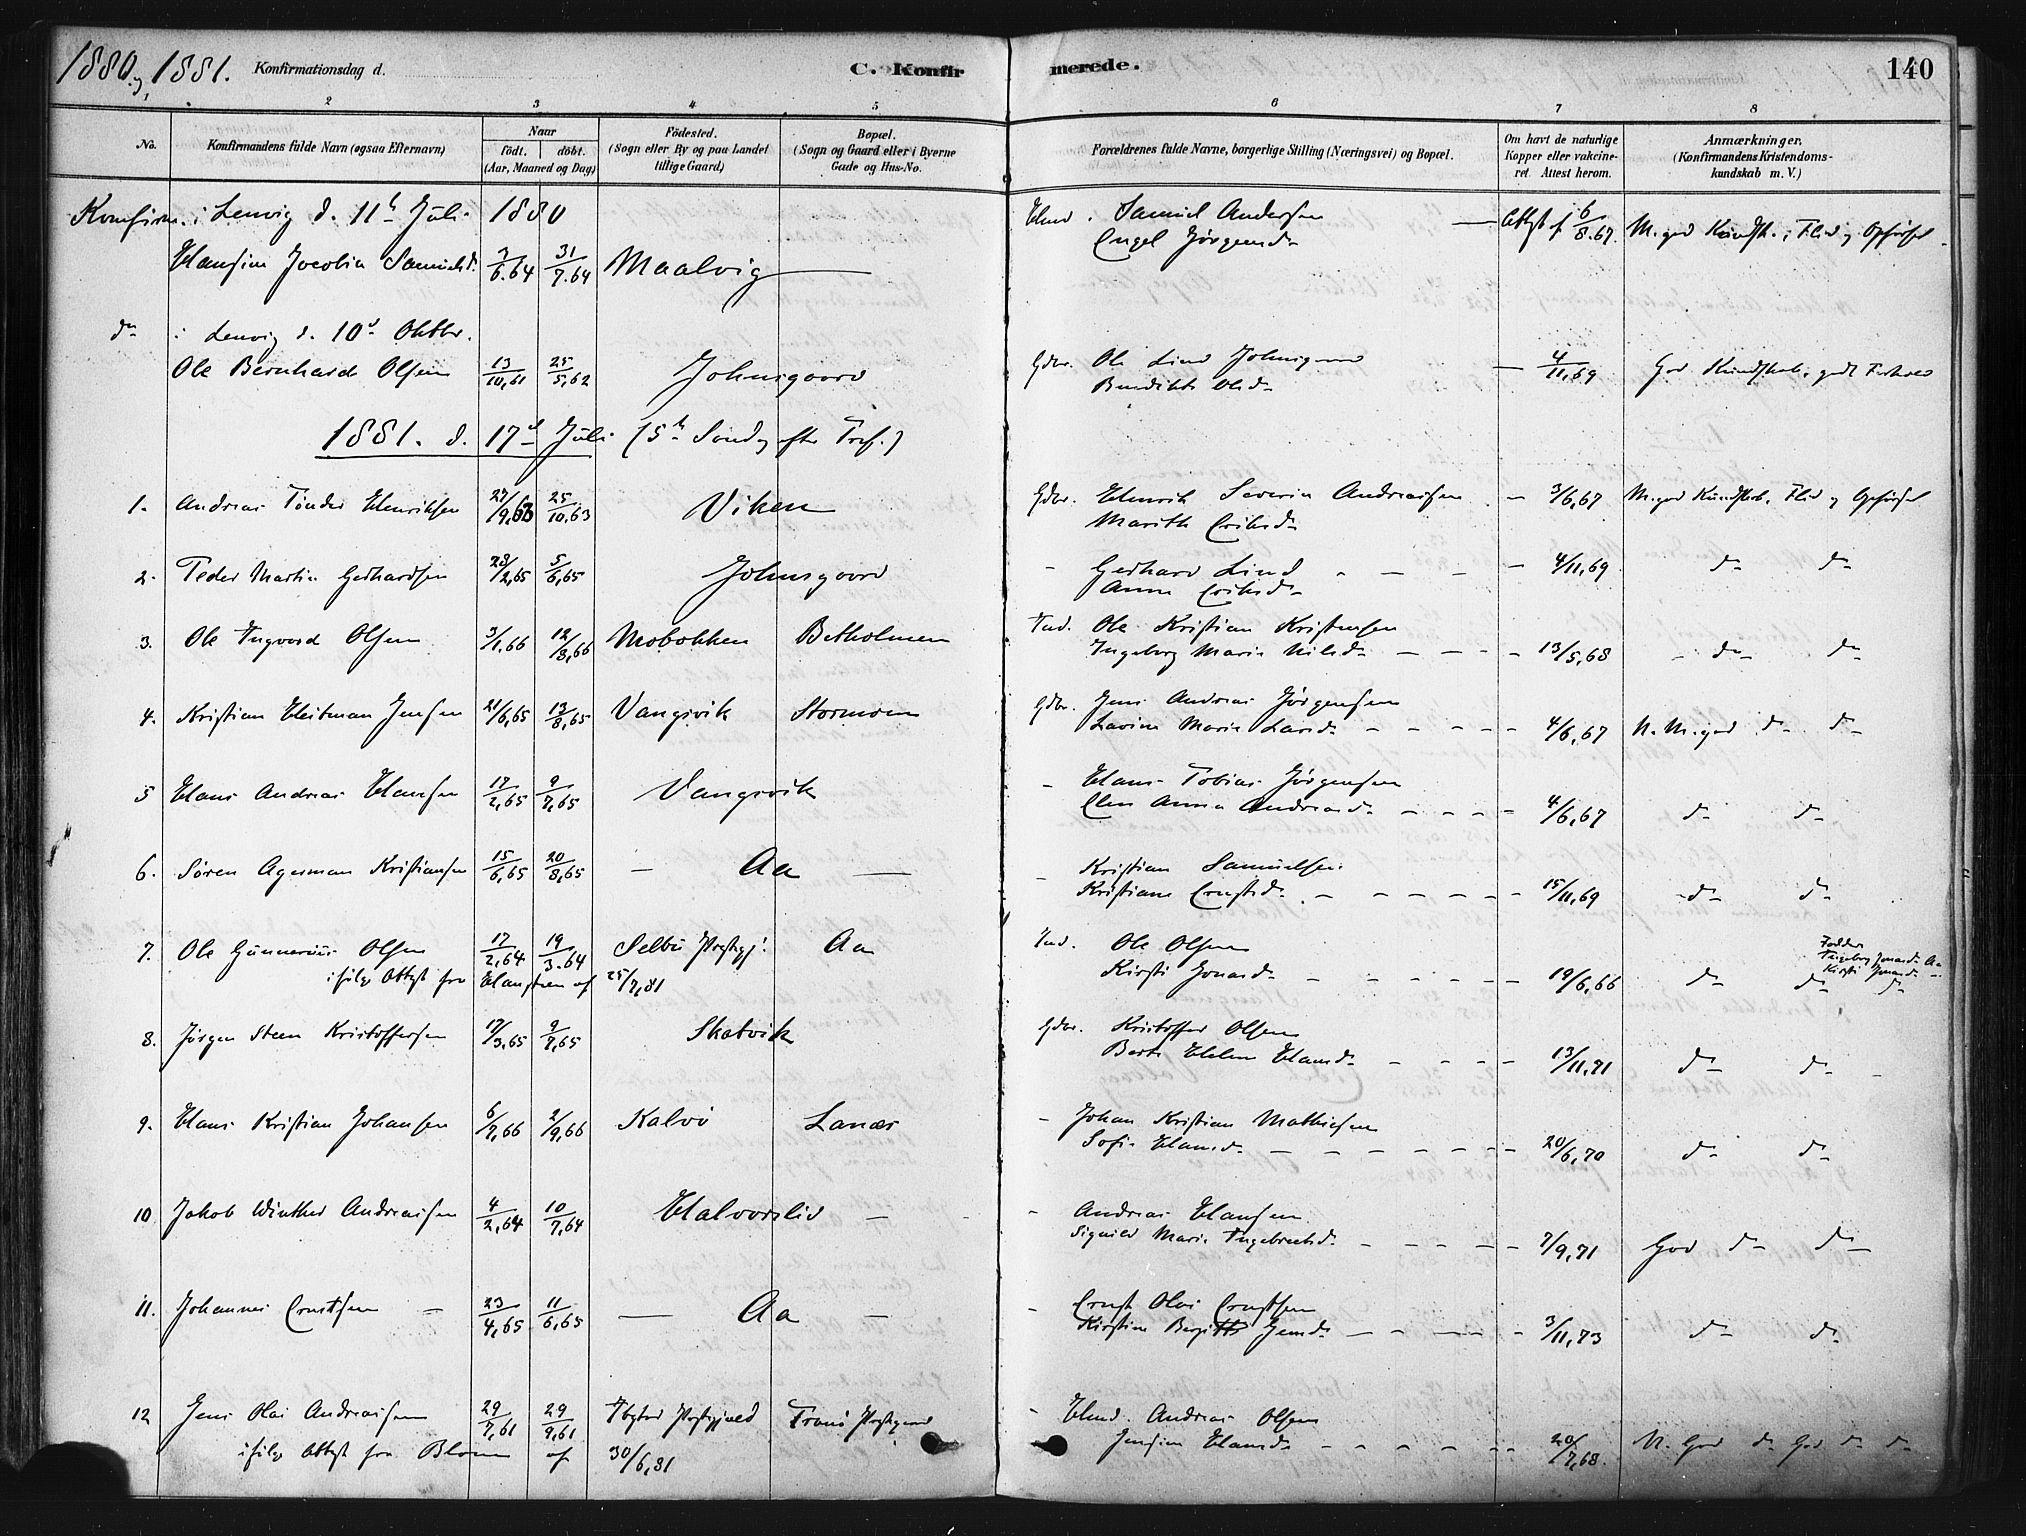 1880 og 1881. Konfirmationsdag d. C. Konfirmerede. 140
2 3 4 5 6 7 8
No. Konfirmandens fulde Navn (ogsaa Efternavn) Naar födt. döbt. (Aar, Maaned og Dag) Födested. (Sogn eller By og paa Landet tillige Gaard) Bopæl. (Sogn og Gaard eller i Byerne Gade og Hus-No.) Forældrenes fulde Navne, borgerlige Stilling (Næringsvei) og Bopæl. Om havt de naturlige Kopper eller vakcineret. Attest herom. Anmærkninger. (Konfirmandens Kristendomskundskab m. V.)
Konfirm. i Lenvig d. 11te Juli 1880 Hmd. Samuel Andersen Attest f 6/8.67. M. god Kundsk., Flid og Opførsel
Hansine Jocobia Samuelsd. 3/6.64 31/7.64 Maalvig Engel Jørgensd.
do i Lenvig d. 10de Oktbr.
Ole Bernhard Olsen 13/10,61 25/5,62 Johnsgaard Gdbr. Ole Lind Johnsgaard 4/11,69 God Kundskab, godt Forhold
Benedikte Olsd.
1881. d. 17de Juli (5te Søndag efter Tref.)
1. Andreas Tönder Henriksen 27/9,63 25/10,63 Viken Gdbr. Henrik Severin Andreassen 3/6,67 M. god Kundskab, Flid og Opførsel
Marith Eriksd.
2. Peder Martin Gerhardsen 28/2,65 5/6,65 Johnsgaard - Gerhard Lind 4/11,69 do do
Anna Eriksd.
3. Ole Ingvard Olsen 3/1,66 12/8,66 Mobakken Betholmen Ind. Ole Kristian Kristensen
Ingeborg Marie Nilsd. 13/5,68 do do
4. Kristian Heitman Jensen 21/6,65 13/8,65 Vangsvik Stormoen Gdbr. Jens Andreas Jørgensen
Lavine Marie Larsd. 4/6,67 N. M. god do do
5 Hans Andreas Hansen 17/2,65 9/7,65 Vangsvik - Hans Tobias Jørgensen
Elen Anna Andreasd. 4/6,67 do do
6. Søren Agerman Kristiansen 15/6,65 20/8,65 Aa - Kristian Samuelsen
Kristiane Ernstsd. 15/11,69 do do
7. Ole Gunnerius Olsen 17/2,64 19/3.64 Selbu Prestgj. Aa Ind. Ole Olsen
Kirsti Jonasd. 19/6,66 do do
ifølge Attest fra Klangstuen af 25/7,81
8. Jørgen Steen Kristoffersen 17/3,65 9/7,65 Skatvik Gdbr. Kristoffer Olsen
Berte Helene Hansd. 13/11,71 do do
9. Hans Kristian Johansen 6/7,66 2/9,66 Kalvö Lanæs - Johan Kristian Mathisen
Sofie Hansd. 20/6,70 do do
10. Jakob Winther Andreassen 4/2,64 10/7,64 Halvorslid - Andreas Hansen
Signild Marie Ingebrectsd. 7/9,71 God do do
11. Johannes Ernstsen 23/4,65 11/6,65 Aa - Ernst Olai Ernstsen
Kirstine Jensd. 3/11,73 do do
12 Jens Olai Andreassen 29/7,61 29/9,61 Ibestad Prestegjeld Tranö Hmd. Andreas Olsen
Jensine Hansd. 20/7,68. N. God do God do do
ifølge Attest fra af 30/6,81